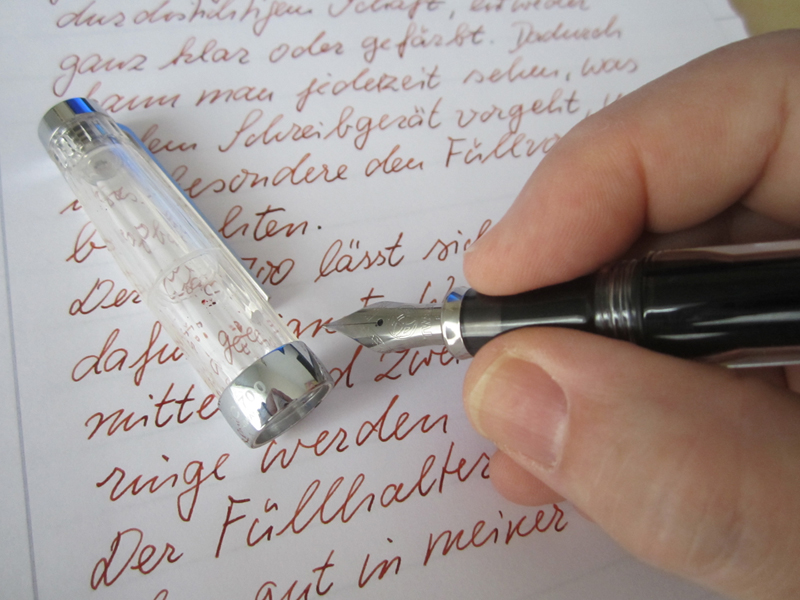 durchsichtigem Schaft, entweder
ganz klar oder gefärbt. Dadurch
kann man jederzeit sehen, was
dem Schreibgerät vorgeht,
besondere den Füllvo
Der 700 lässt sich
dafü
mitte d zwe
ringe werden
Der Füllhalter
gut in meiner
700